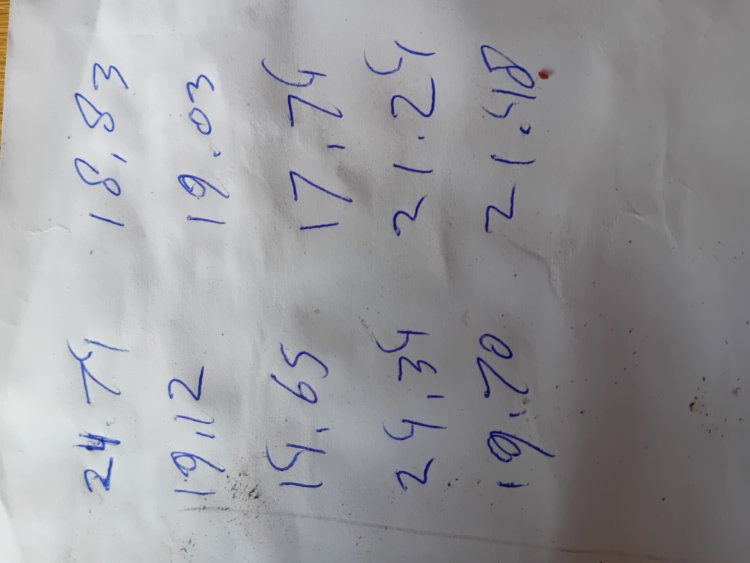 24.74 18.83
19.12 19.03
14.65 17.74
24.34 21.24
19.70 21.48